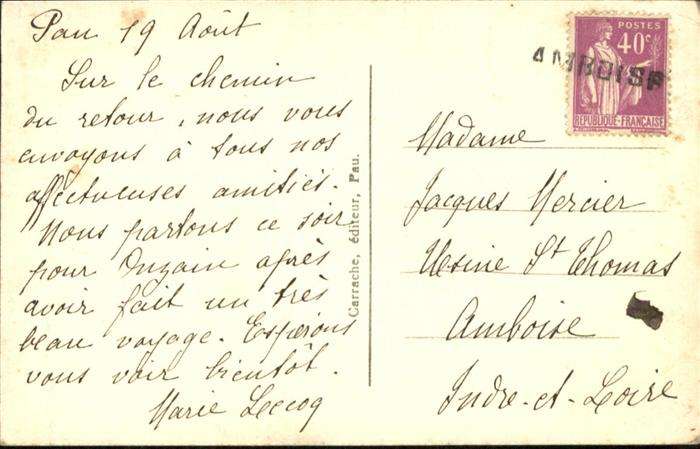 Pau 19 Août
Sur le chemin
du retour, nous vous
envoyons à tous nos
affectueuses amitiés.
Nous partons ce soir
pour Onzain après
avoir fait un très
beau voyage. Espérons
vous voir bientôt.
Marie Lecoq
Carrache, éditeur, Pau.
POSTES
40c
RÉPUBLIQUE-FRANÇAISE
AMBOISE
Madame
Jacques Mercier
Usine St Thomas
Amboise
Indre-et-Loire